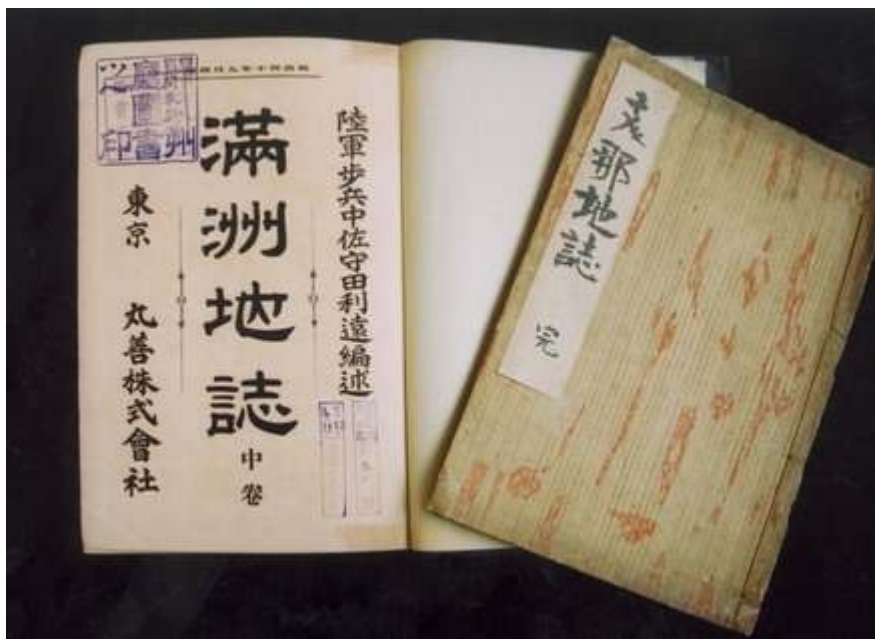 陸軍步兵中佐守田利遠編述
滿洲地誌 中卷
東京 丸善株式會社
廳圖書
之印
支那地誌 完